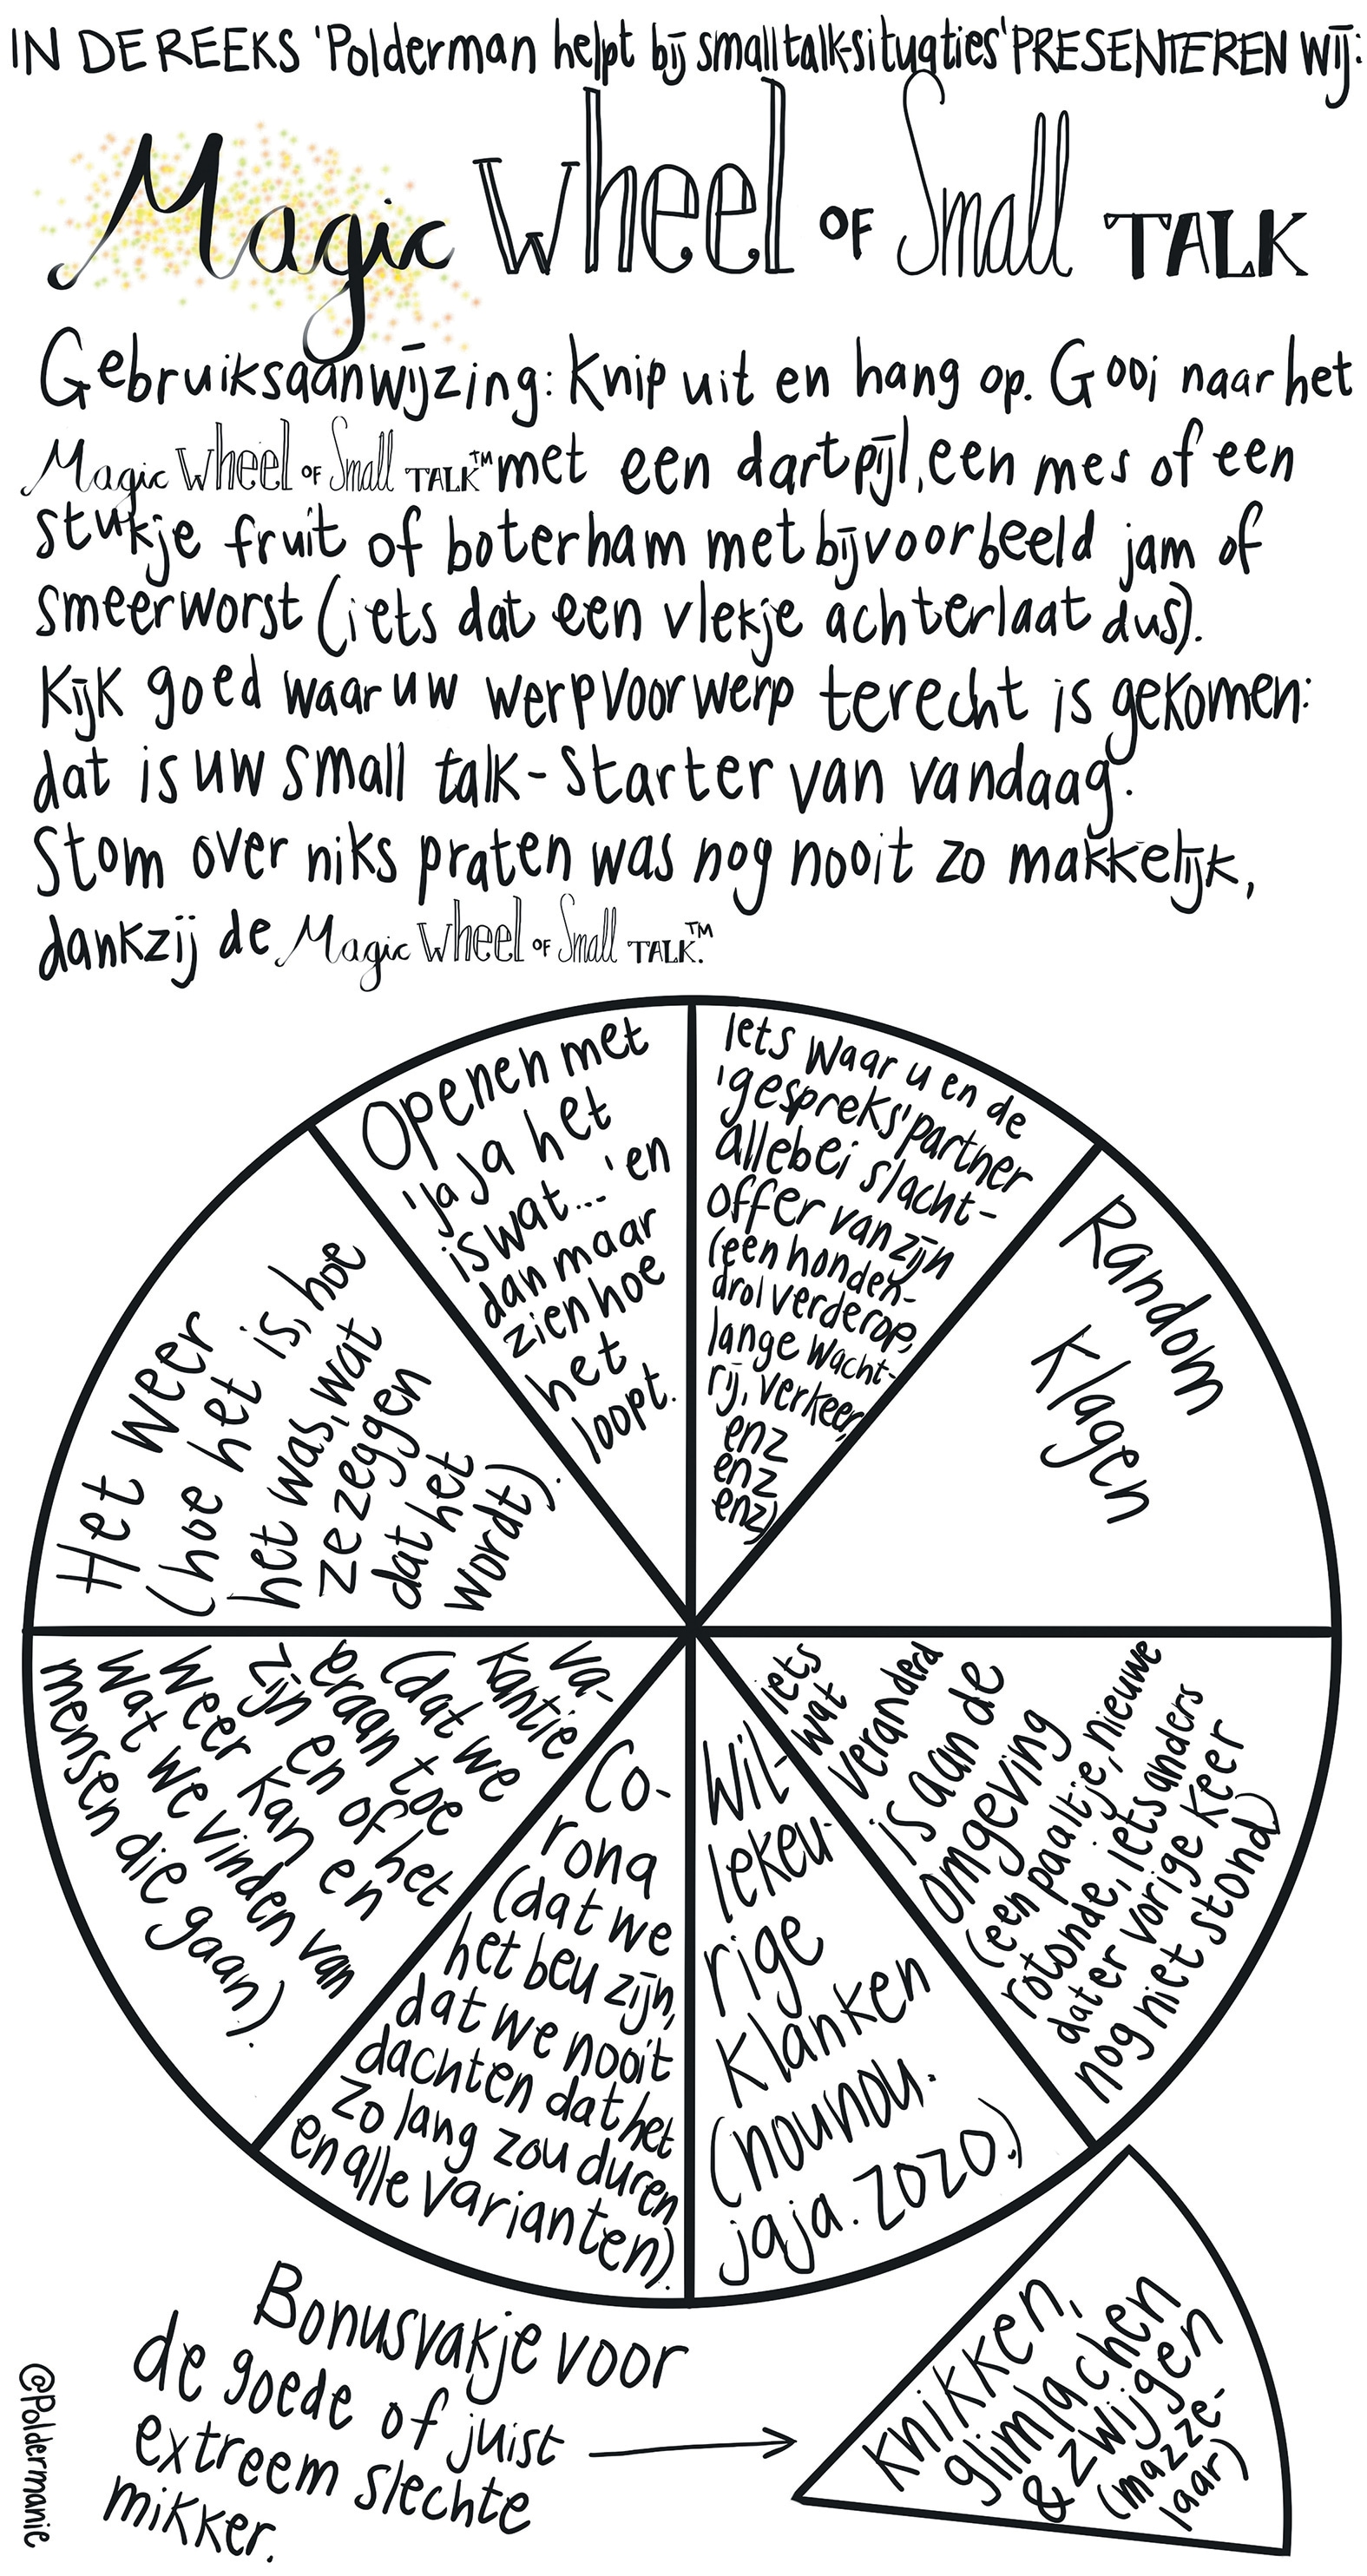 IN DE REEKS 'Polderman helpt bij smalltalk-situaties' PRESENTEREN wij:
Magic Wheel OF Small TALK
Gebruiksaanwijzing: Knip uit en hang op. Gooi naar het
Magic Wheel OF Small TALK™ met een dartpijl, een mes of een
stukje fruit of boterham met bijvoorbeeld jam of
smeerworst (iets dat een vlekje achterlaat dus).
Kijk goed waar uw werpvoorwerp terecht is gekomen:
dat is uw small talk-starter van vandaag.
Stom over niks praten was nog nooit zo makkelijk,
dankzij de Magic Wheel OF Small TALK.™
Openen met
'ja ja het
is wat...' en
dan maar
zien hoe
het
loopt.
Iets waar u en de
'gespreks'partner
allebei slacht-
offer van zijn
(een honden-
drol verderop,
lange wacht-
rij, verkeer,
enz
enz
enz)
Random
Klagen
iets
wat
veranderd
is aan de
omgeving
(een paaltje, nieuwe
rotonde, iets anders
dat er vorige keer
nog niet stond)
Wil-
lekeu-
rige
Klanken
(nounou.
jaja. zozo.)
Co-
rona
(dat we
het beu zijn,
dat we nooit
dachten dat het
zo lang zou duren
en alle varianten).
va-
kantie
(dat we
eraan toe
zijn en of het
weer kan en
wat we vinden van
mensen die gaan).
Het weer
(hoe het is, hoe
het was, wat
ze zeggen
dat het
wordt).
Bonusvakje voor
de goede of juist
extreem slechte
mikker.
knikken,
glimlachen
& zwijgen
(mazze-
laar)
©Poldermanie